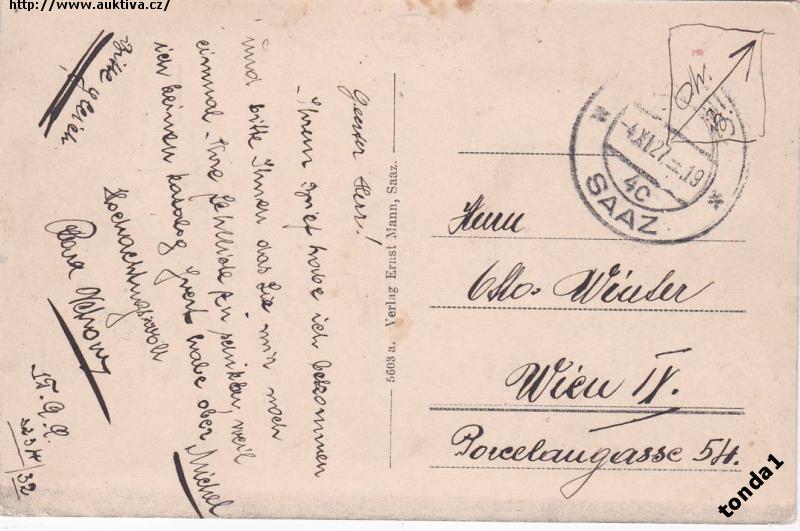 http://www.auktiva.cz/
Geerter Herr!
Ihrem Brief habe ich bekommen
und bitte Ihnen das Sie mir noch
einmal Ihre schicken, weil
ich keinen Katalog Ivert habe aber Michel
Hochachtungsvoll
Bitte gleich
5603 a. Verlag Ernst Mann, Saaz.
-4.XI.27.-19
4c
SAAZ
Herrn
Otto Winter
Wien IX.
Porcelangasse 54.
tonda1